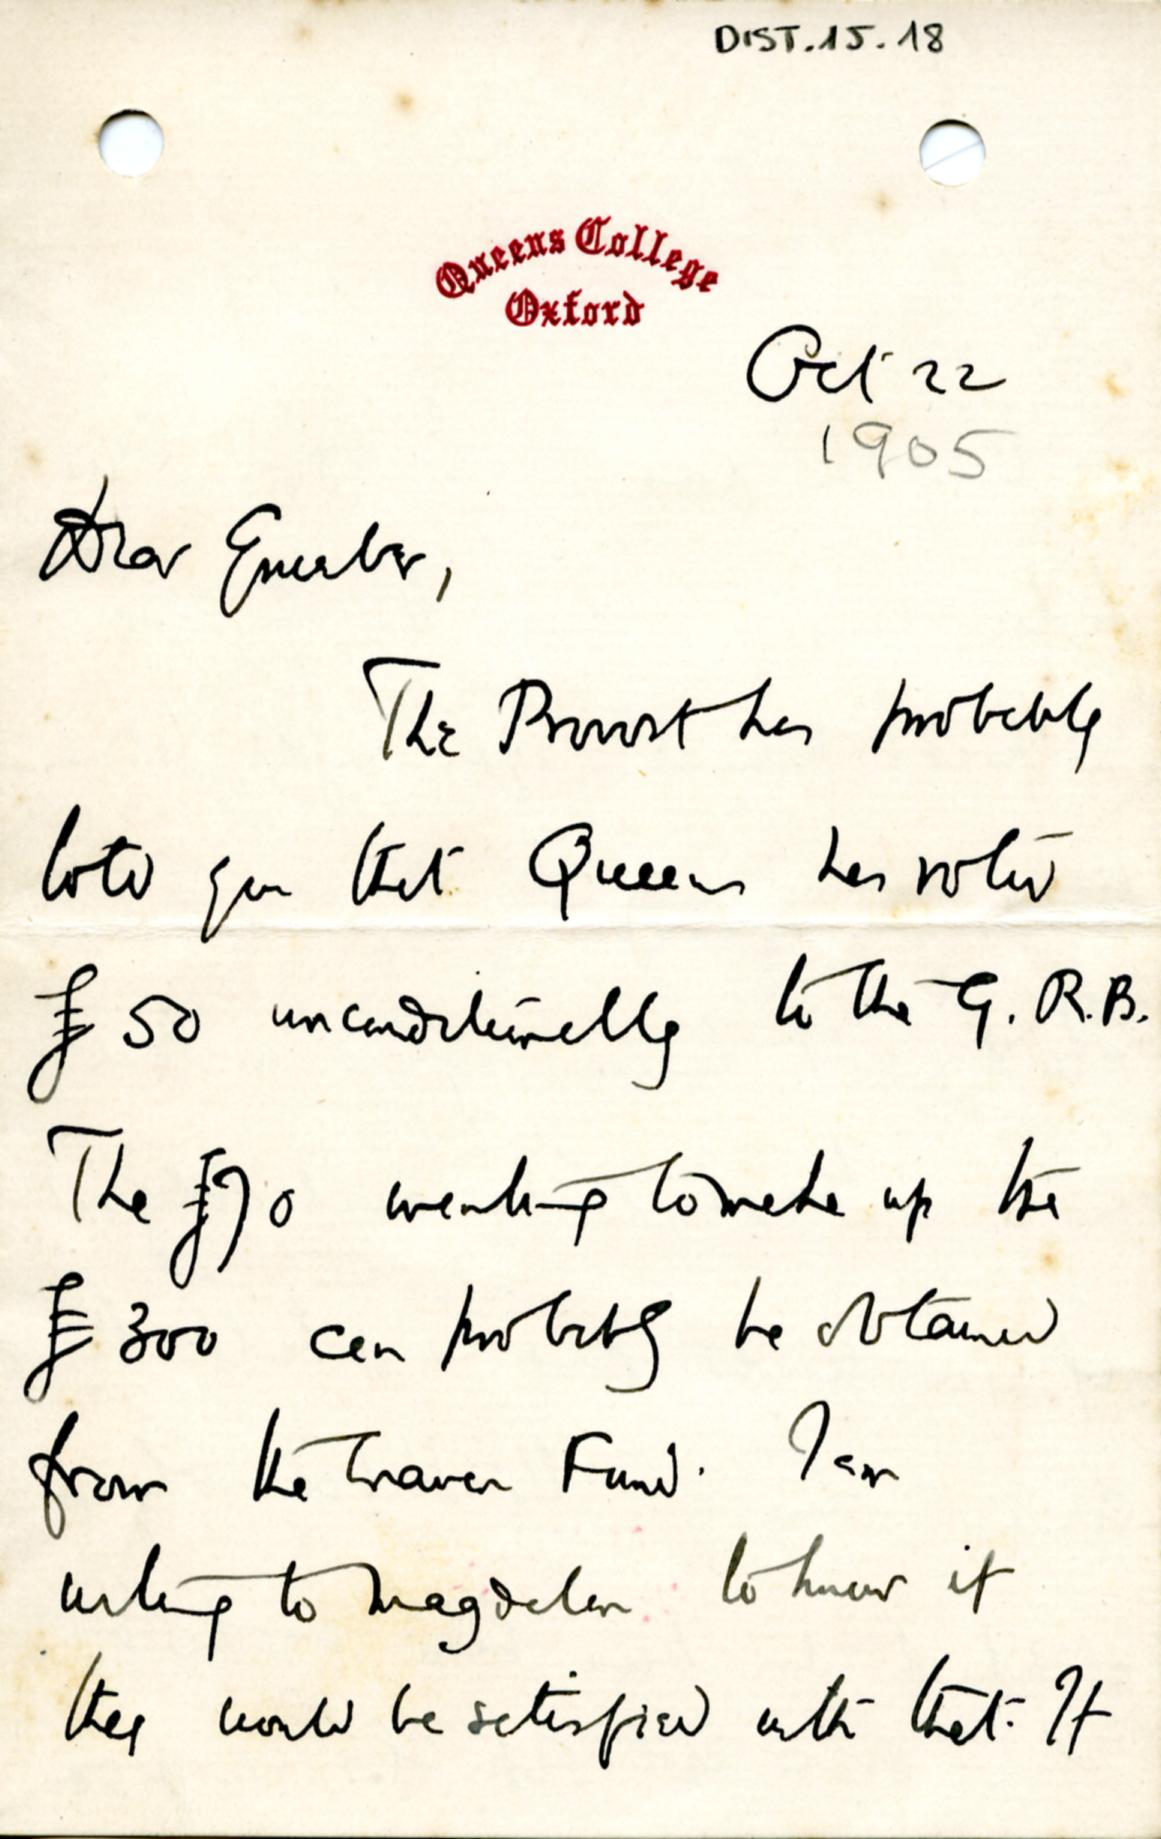 DIST.15.18
Queens College
Oxford
Oct 22
1905
Dear Grueber,
The Provost has probably
told you that Queens has voted
£50 unconditionally to the G.R.B.
The £70 wanting to make up the
£300 can probably be obtained
from the Craven Fund. I am
writing to Magdalen to know if
they would be satisfied with that. If